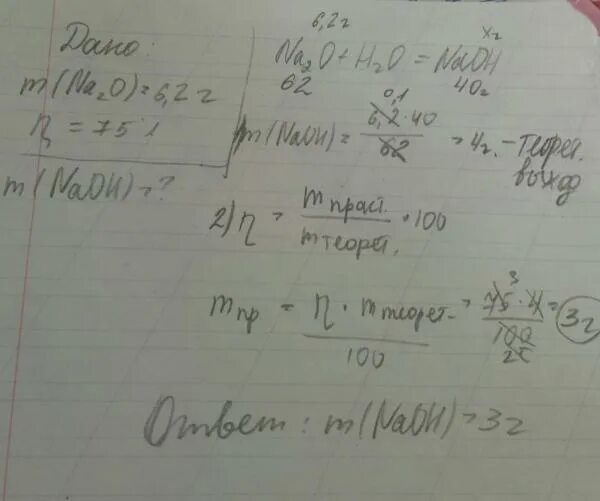 Дано:
m(Na₂O)=6,2г
η = 75%
m(NaOH)=?
6,2г xг
Na₂O+H₂O=NaOH
62 40г
0,1
m(NaOH)= 6,2·40 / 62 = 4г. - теорет. выход
2) η = m практ. / m теорет. · 100
m пр = η · m теорет. / 100 = 75·4 / 100 = 3г
3
25
Ответ: m(NaOH)=3г